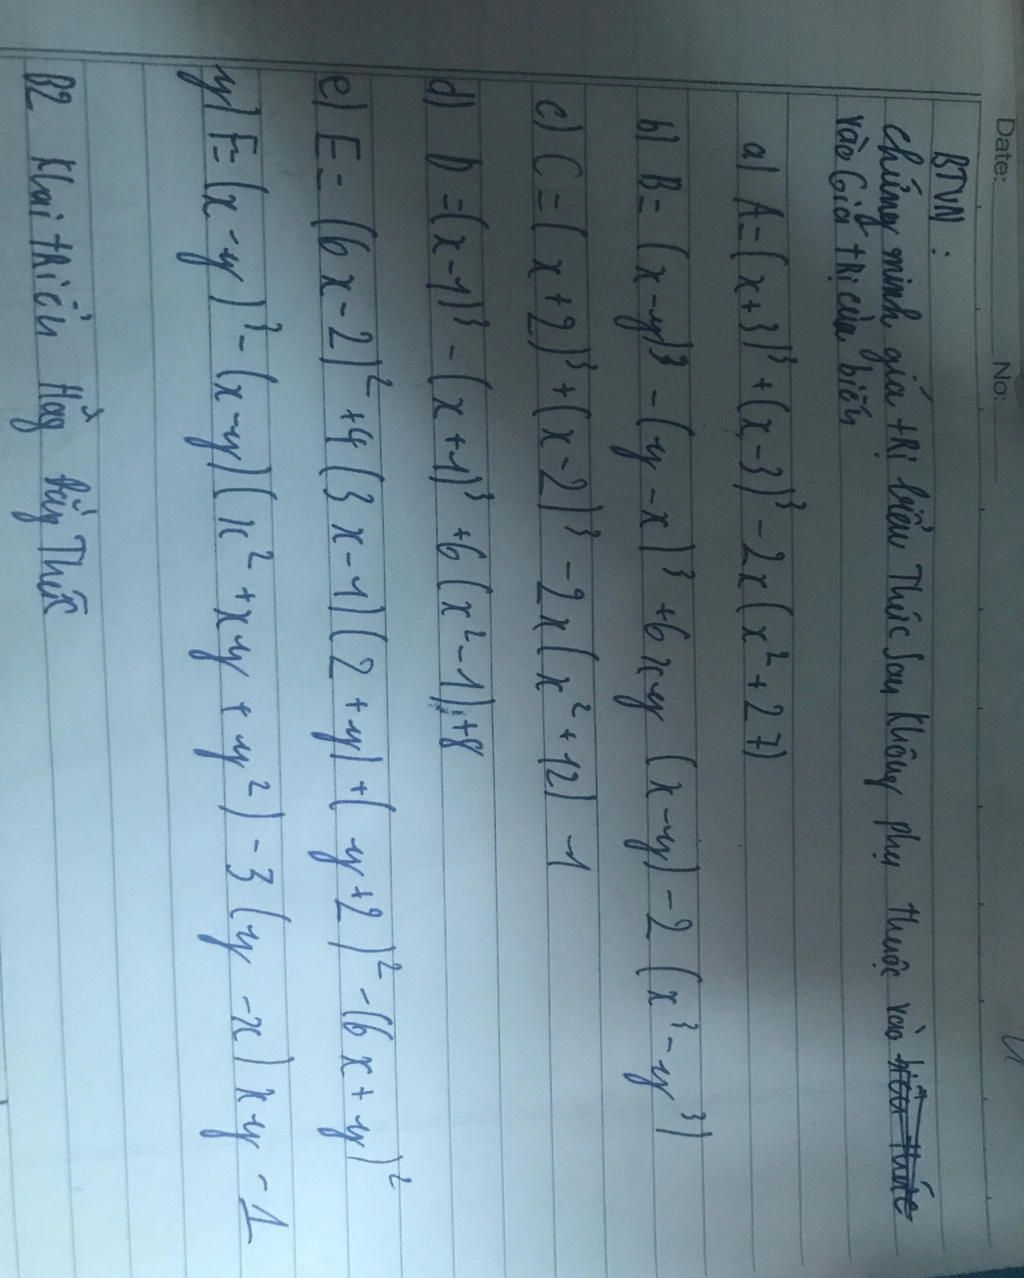 Date: No:
BTVN:
Chứng minh giá trị biểu thức sau không phụ thuộc vào biểu thức
vào giá trị của biến
a) A = (x+3)³ + (x-3)³ - 2x(x²+27)
b) B = (x-y)³ - (y-x)³ + 6xy (x-y) - 2 (x³-y³)
c) C = (x+2)³ + (x-2)³ - 2x(x²+12) - 1
d) D = (x-1)³ - (x+1)³ + 6(x²-1) + 8
e) E = (6x-2)² + 4(3x-1)(2+y) + (y+2)² - (6x+y)²
y) F = (x-y)³ - (x-y)(x²+xy+y²) - 3(y-x)xy - 1
B2 Khai triển Hằng đẳng Thức